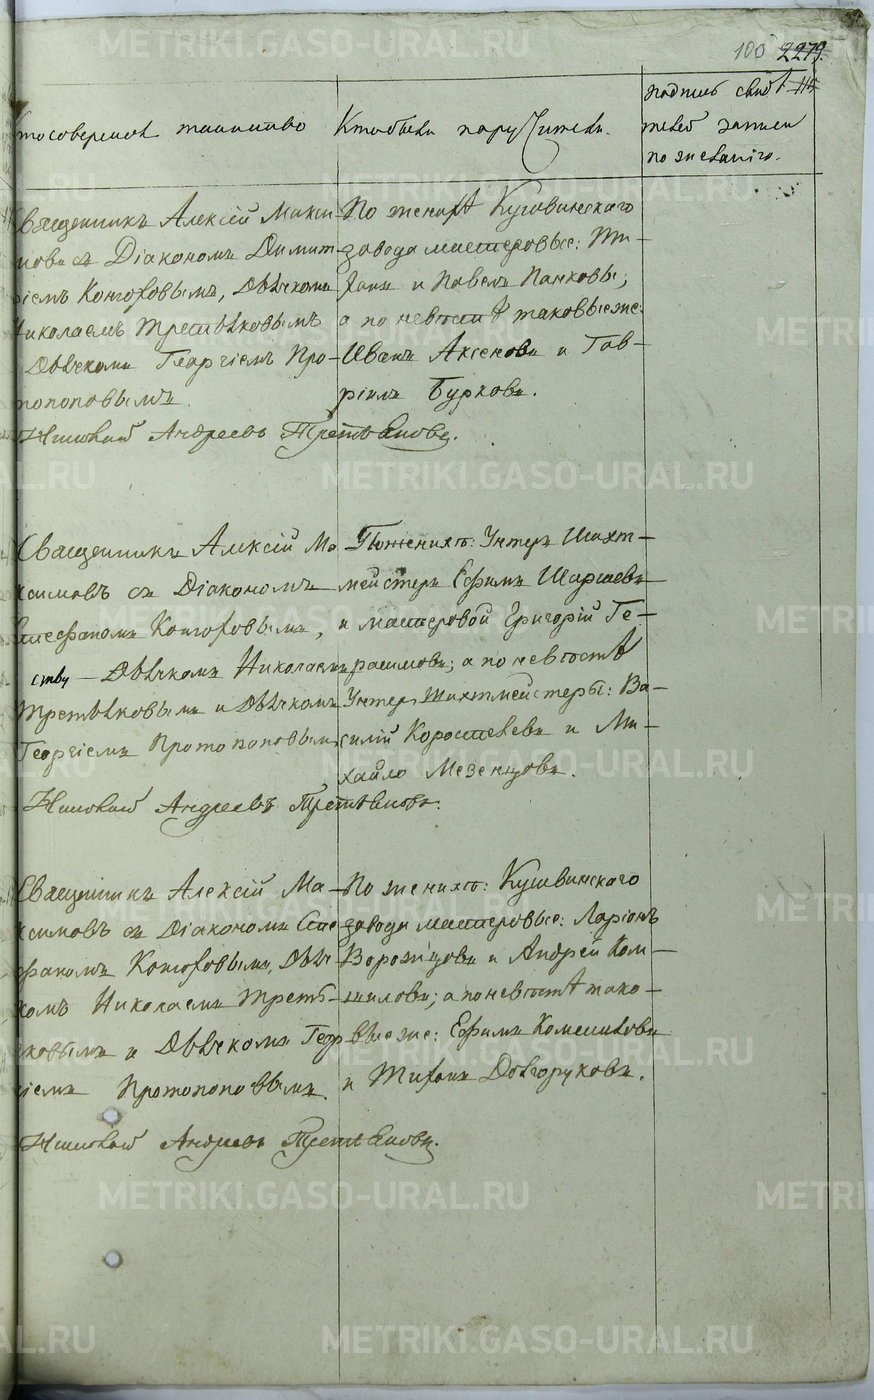 100 2279.
115
Кто совершал таинство
Кто были поручители.
Подпись свидѣ
телей записи
по желанію.
Священникъ Алексій Макси
мовъ съ Діакономъ Димит
ріемъ Коноровымъ, Дьячкомъ
Николаемъ Третьяковымъ
Дьячкомъ Георгіемъ Про-
топоповымъ.
Андреевъ Третьяковъ.
По женихѣ Кушвинскаго
завода мастеровые: Ти-
фанъ и Павелъ Панковы;
а по невѣстѣ таковыеже:
Иванъ Аксеновъ и Гав-
ріилъ Бурковъ.
Священникъ Алексій Ма
ксимовъ съ Діакономъ
Стефаномъ Коноровымъ,
ству — Дьячкомъ Николаемъ
Третьяковымъ и Дьячкомъ
Георгіемъ Протопоповымъ
Андреевъ Третьяковъ.
По женихѣ: Унтеръ Шихт-
мейстеръ Ефимъ Шаргаевъ
и мастеровой Григорій Ге-
расимовъ; а по невѣстѣ
Унтеръ Шихтмейстеры: Ва-
силій Коростелевъ и Ми-
хайло Мезенцовъ.
Священникъ Алексій Ма-
ксимовъ съ Діакономъ Сте
фаномъ Коноровымъ, Дьяч-
комъ Николаемъ Треть-
яковымъ и Дьячкомъ Геор
гіемъ Протопоповымъ.
Андреевъ Третьяковъ.
По женихѣ: Кушвинскаго
завода мастеровые: Ларіонъ
Ворожцовъ и Андрей Ком-
ниловъ; а по невѣстѣ тако-
выеже: Ефимъ Комельковъ
и Тифанъ Долгоруковъ.
METRIKI.GASO-URAL.RU